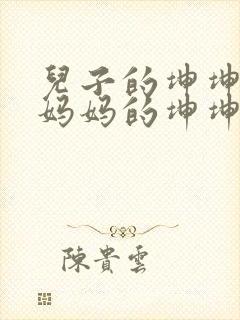 兒子的坤坤
妈妈的坤坤
陳貴雲